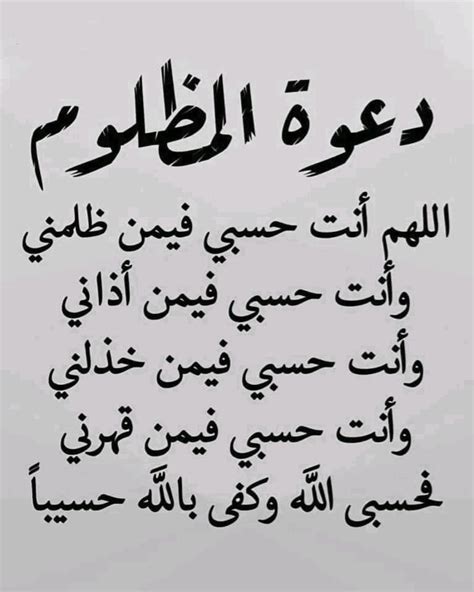 دعوة المظلوم
اللهم أنت حسبي فيمن ظلمني
وأنت حسبي فيمن أذاني
وأنت حسبي فيمن خذلني
وأنت حسبي فيمن قهرني
فحسبى اللَّه وكفى باللَّه حسيباً